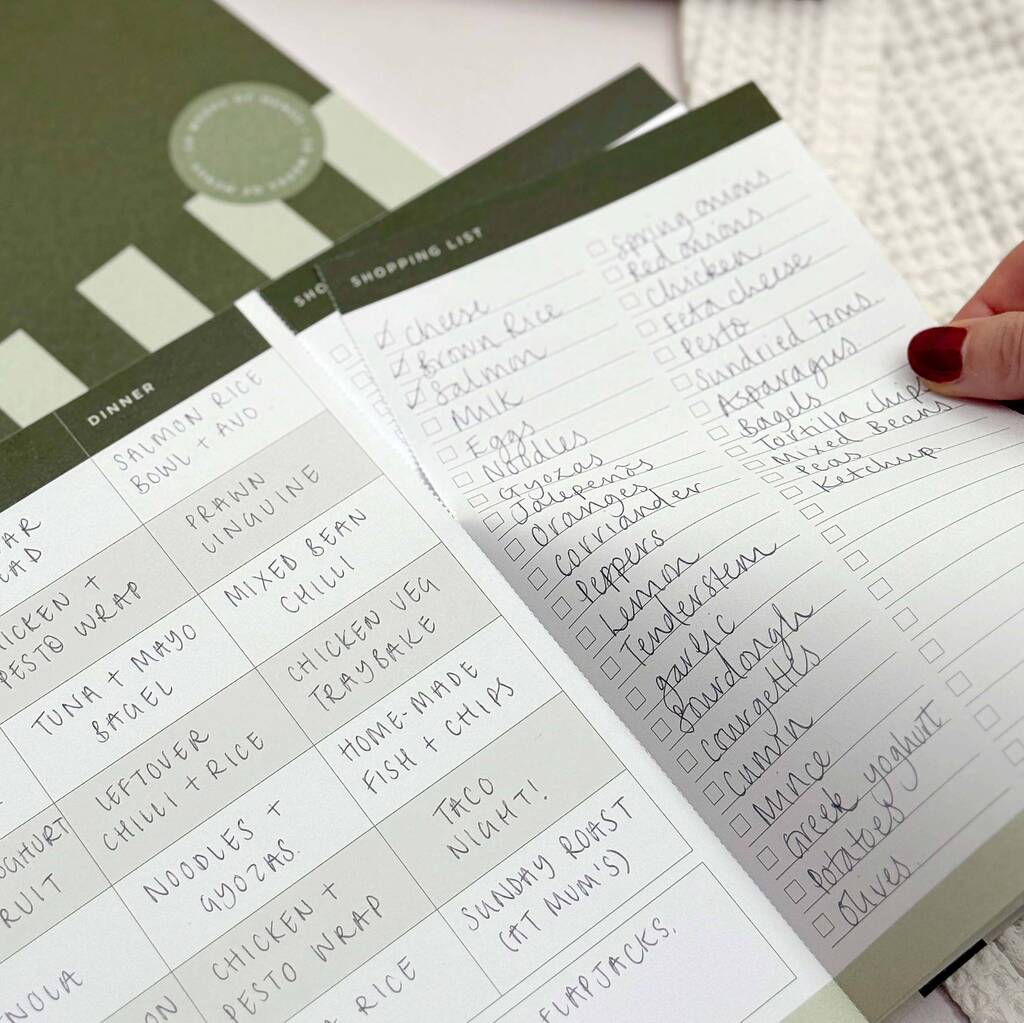 SHO
SHOPPING LIST
Cheese
Brown Rice
Salmon
Milk
Eggs
Noodles
Gyozas
Jalepeños
Oranges
Corriander
Peppers
Lemon
Tenderstem
garlic
Sourdough
Courgettes
Cumin
Mince
Greek yoghurt
Potatoes
Olives
Spring onions
Red onions
Chicken
Feta cheese
Pesto
Sundried toms.
Asparagus.
Bagels
Tortilla chip
Mixed Beans
Peas
Ketchup
DINNER
SALMON RICE
BOWL + AVO.
PRAWN
LINGUINE
MIXED BEAN
CHILLI
CHICKEN VEG
TRAYBAKE
HOME-MADE
FISH + CHIPS
TACO
NIGHT!
SUNDAY ROAST
(AT MUM'S)
AR
AD
HICKEN +
PESTO WRAP
TUNA + MAYO
BAGEL
LEFTOVER
CHILLI + RICE
NOODLES +
GYOZAS.
CHICKEN +
PESTO WRAP
RICE
FLAPJACKS.
OGHURT
RUIT
NOLA
ON